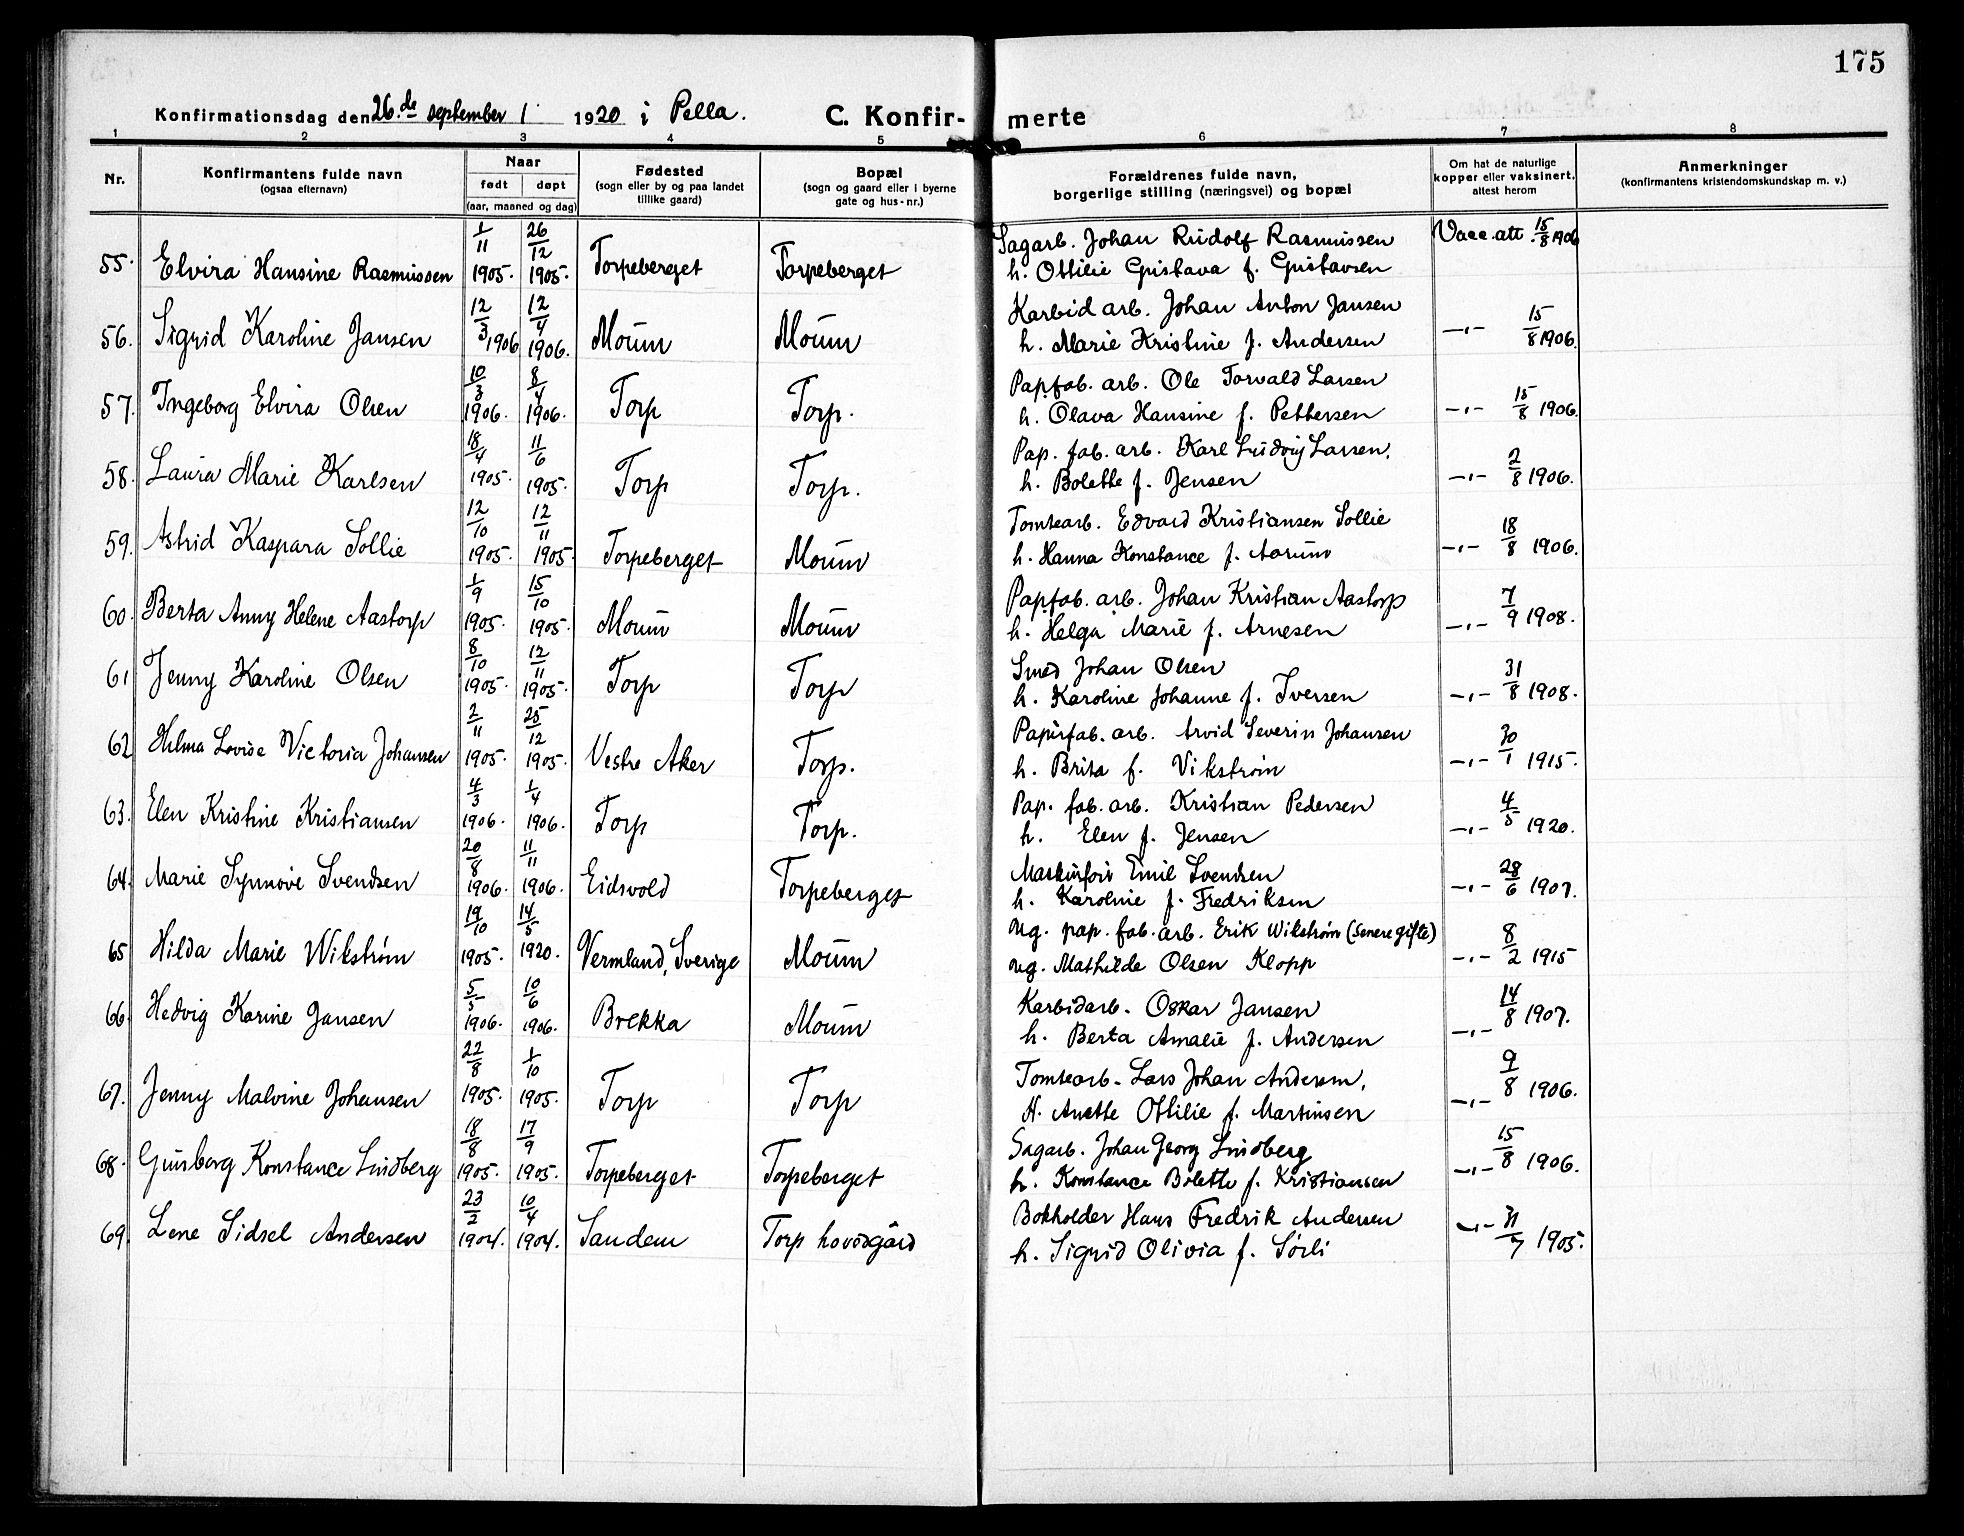 175
Konfirmationsdag den 26.de september 1920 i Pella. C. Konfir- merte
1 2 3 4 5 6 7 8
Nr. Konfirmantens fulde navn (ogsaa efternavn) Naar født døpt (aar, maaned og dag) Fødested (sogn eller by og paa landet tillike gaard) Bopæl (sogn og gaard eller i byerne gate og hus-nr.) Forældrenes fulde navn, borgerlige stilling (næringsvei) og bopæl Om hat de naturlige kopper eller vaksinert, attest herom Anmerkninger (konfirmantens kristendomskundskap m. v.)
55. Elvira Hansine Rasmussen 1/11 1905. 26/12 1905. Torpeberget Torpeberget Sagarb. Johan Rudolf Rasmussen Vacc. att. 15/8 1906
h. Ottilie Gustava f. Gustavsen
56. Sigrid Karoline Jansen 12/3 1906 12/4 1906. Moum Moum Karbid arb. Johan Anton Jansen -"- 15/8 1906.
h. Marie Kristine f. Andersen
57. Ingeborg Elvira Olsen 10/3 1906. 8/4 1906. Torp Torp. Papfab. arb. Ole Torvald Larsen
h. Olava Hansine f. Pettersen -"- 15/8 1906.
58. Laura Marie Karlsen 18/4 1905. 11/6 1905. Torp Torp. Pap. fab. arb. Karl Ludvig Larsen.
h. Bolette f. Jensen -"- 2/8 1906.
59. Astrid Kaspara Sollie 12/10 1905. 12/11 1905. Torpeberget Moum Tomtearb. Edvard Kristiansen Sollie
h. Hanna Konstance f. Aarum -"- 18/8 1906.
60. Berta Anny Helene Aastorp 1/9 1905. 15/10 1905. Moum Moum Papfab. arb. Johan Kristian Aastorp
h. Helga Marie f. Arnesen -"- 7/9 1908.
61 Jenny Karoline Olsen 8/10 1905. 12/11 1905. Torp Torp Smed Johan Olsen
h. Karoline Johanne f. Iversen -"- 31/8 1908.
62 Hilma Lovise Victoria Johansen 2/11 1905. 25/12 1905. Vestre Aker Torp. Papirfab. arb. Arvid Severin Johansen
h. Brita f. Vikstrøm -"- 30/1 1915.
63. Elen Kristine Kristiansen 4/3 1906. 1/4 1906. Torp Torp. Pap. fab. arb. Kristian Pedersen
h. Elen f. Jensen -"- 4/5 1920.
64. Marie Synnøve Svendsen 20/8 1906. 11/11 1906. Eidsvold Torpeberget Emil Svendsen
h. Karoline f. Fredriksen -"- 28/6 1907.
65 Hilda Marie Wikstrøm 19/10 1905. 14/5 1920. Vermland, Sverige Moum Ug. pap. fab. arb. Erik Wikstrøm (senere gifte)
ug. Mathilde Olsen Klopp -"- 8/2 1915
66 Hedvig Karine Jansen 5/5 1906. 10/6 1906. Brekka Moum Karbidarb. Oskar Jansen
h. Berta Amalie f. Andersen -"- 14/8 1907.
67. Jenny Malvine Johansen 22/8 1905. 1/10 1905. Torp Torp Tomtearb. Lars Johan Andersen,
H. Anette Ottilie f. Martinsen -"- 9/8 1906.
68. Gunborg Konstance Lindberg 18/8 1905. 17/9 1905. Torpeberget Torpeberget Sagarb. Johan Georg Lindberg
h. Konstance Bolette f. Kristiansen -"- 15/8 1906.
69. Lene Sidsel Andersen 23/2 1904. 10/4 1904. Sandem Torp hovedgård Bokholder Hans Fredrik Andersen
h. Sigrid Olivia f. Sørli -"- 31/7 1905.